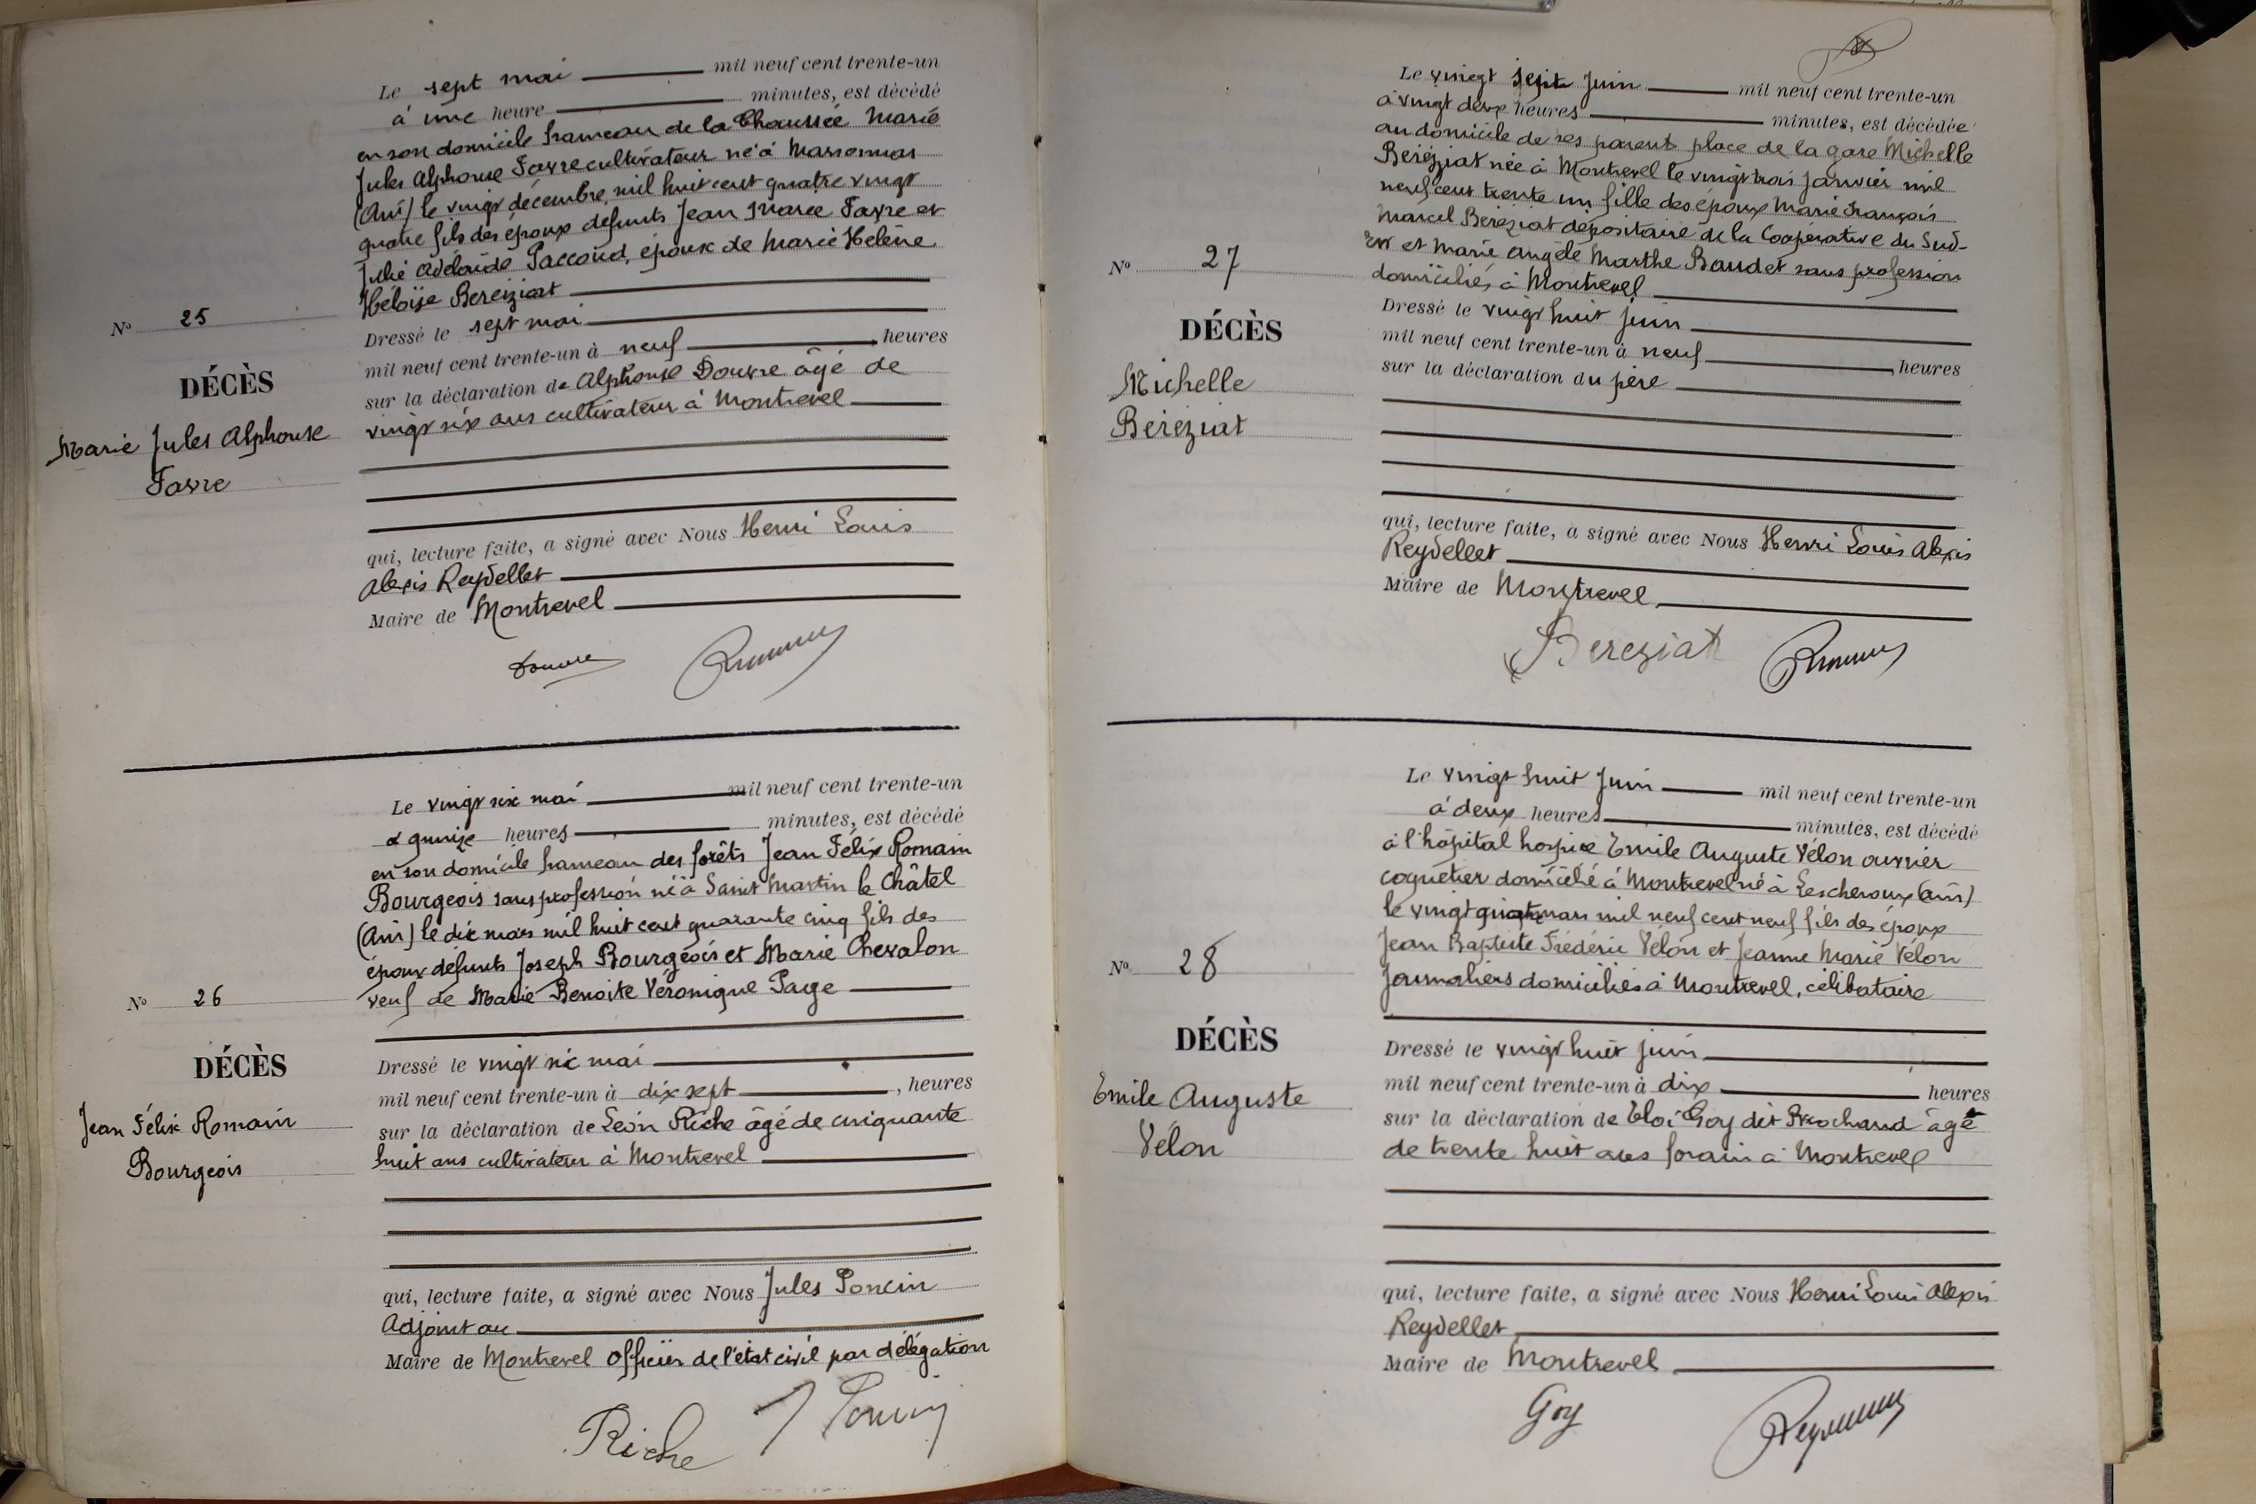 Le sept mai mil neuf cent trente-un
à une heure minutes, est décédé
en son domicile hameau de la Chaussée Marie
Jules Alphonse Favre cultivateur né à Marsonnas
(Ain) le vingt décembre, mil huit cent quatre vingt
quatre fils des époux défunts Jean Marie Favre et
Julie Adelaïde Paccoud, époux de Marie Hélène
Héloïse Bereiziat
Nº 25
Dressé le sept mai
mil neuf cent trente-un à neuf heures
DÉCÈS
sur la déclaration de Alphonse Douvre âgé de
vingt six ans cultivateur à Montrevel
Marie Jules Alphonse
Favre
qui, lecture faite, a signé avec Nous Henri Louis
Alexis Reydellet
Maire de Montrevel
Douvre
Le vingt six mai mil neuf cent trente-un
à quinze heures minutes, est décédé
en son domicile hameau des forêts Jean Félix Romain
Bourgeois sans profession né à Saint Martin le Châtel
(Ain) le dix mars mil huit cent quarante cinq fils des
époux défunts Joseph Bourgeois et Marie Chevalon
veuf de Marie Benoite Véronique Page
Nº 26
DÉCÈS
Dressé le vingt six mai
mil neuf cent trente-un à dix sept, heures
Jean Félix Romain
Bourgeois
sur la déclaration de Léon Riche âgé de cinquante
huit ans cultivateur à Montrevel
qui, lecture faite, a signé avec Nous Jules Poncin
Adjoint au
Maire de Montrevel officier de l'état civil par délégation
Riche J Poncin
Le vingt sept juin mil neuf cent trente-un
à vingt deux heures minutes, est décédée
au domicile de ses parents place de la gare Michelle
Béréziat née à Montrevel le vingt trois janvier mil
neuf cent trente un fille des époux Marie François
Marcel Béréziat dépositaire de la Coopérative du Sud-
Est et Marie Angèle Marthe Baudet sans profession
domiciliés à Montrevel
Nº 27
DÉCÈS
Dressé le vingt huit juin
mil neuf cent trente-un à neuf heures
sur la déclaration du père
Michelle
Béréziat
qui, lecture faite, a signé avec Nous Henri Louis Alexis
Reydellet
Maire de Montrevel
Bereziat
Le vingt huit juin mil neuf cent trente-un
à deux heures minutes, est décédé
à l'hôpital hospice Emile Auguste Vélon ouvrier
coquetier domicilié à Montrevel né à Lescheroux (Ain)
le vingt mars mil neuf cent neuf fils des époux
Jean Baptiste Frédéric Vélon et Jeanne Marie Vélon
journaliers domiciliés à Montrevel, célibataire
Nº 28
DÉCÈS
Dressé le vingt huit juin
mil neuf cent trente-un à dix heures
Emile Auguste
Vélon
sur la déclaration de Eloi Goy dit Brochand âgé
de trente huit ans forain à Montrevel
qui, lecture faite, a signé avec Nous Henri Louis Alexis
Reydellet
Maire de Montrevel
Goy